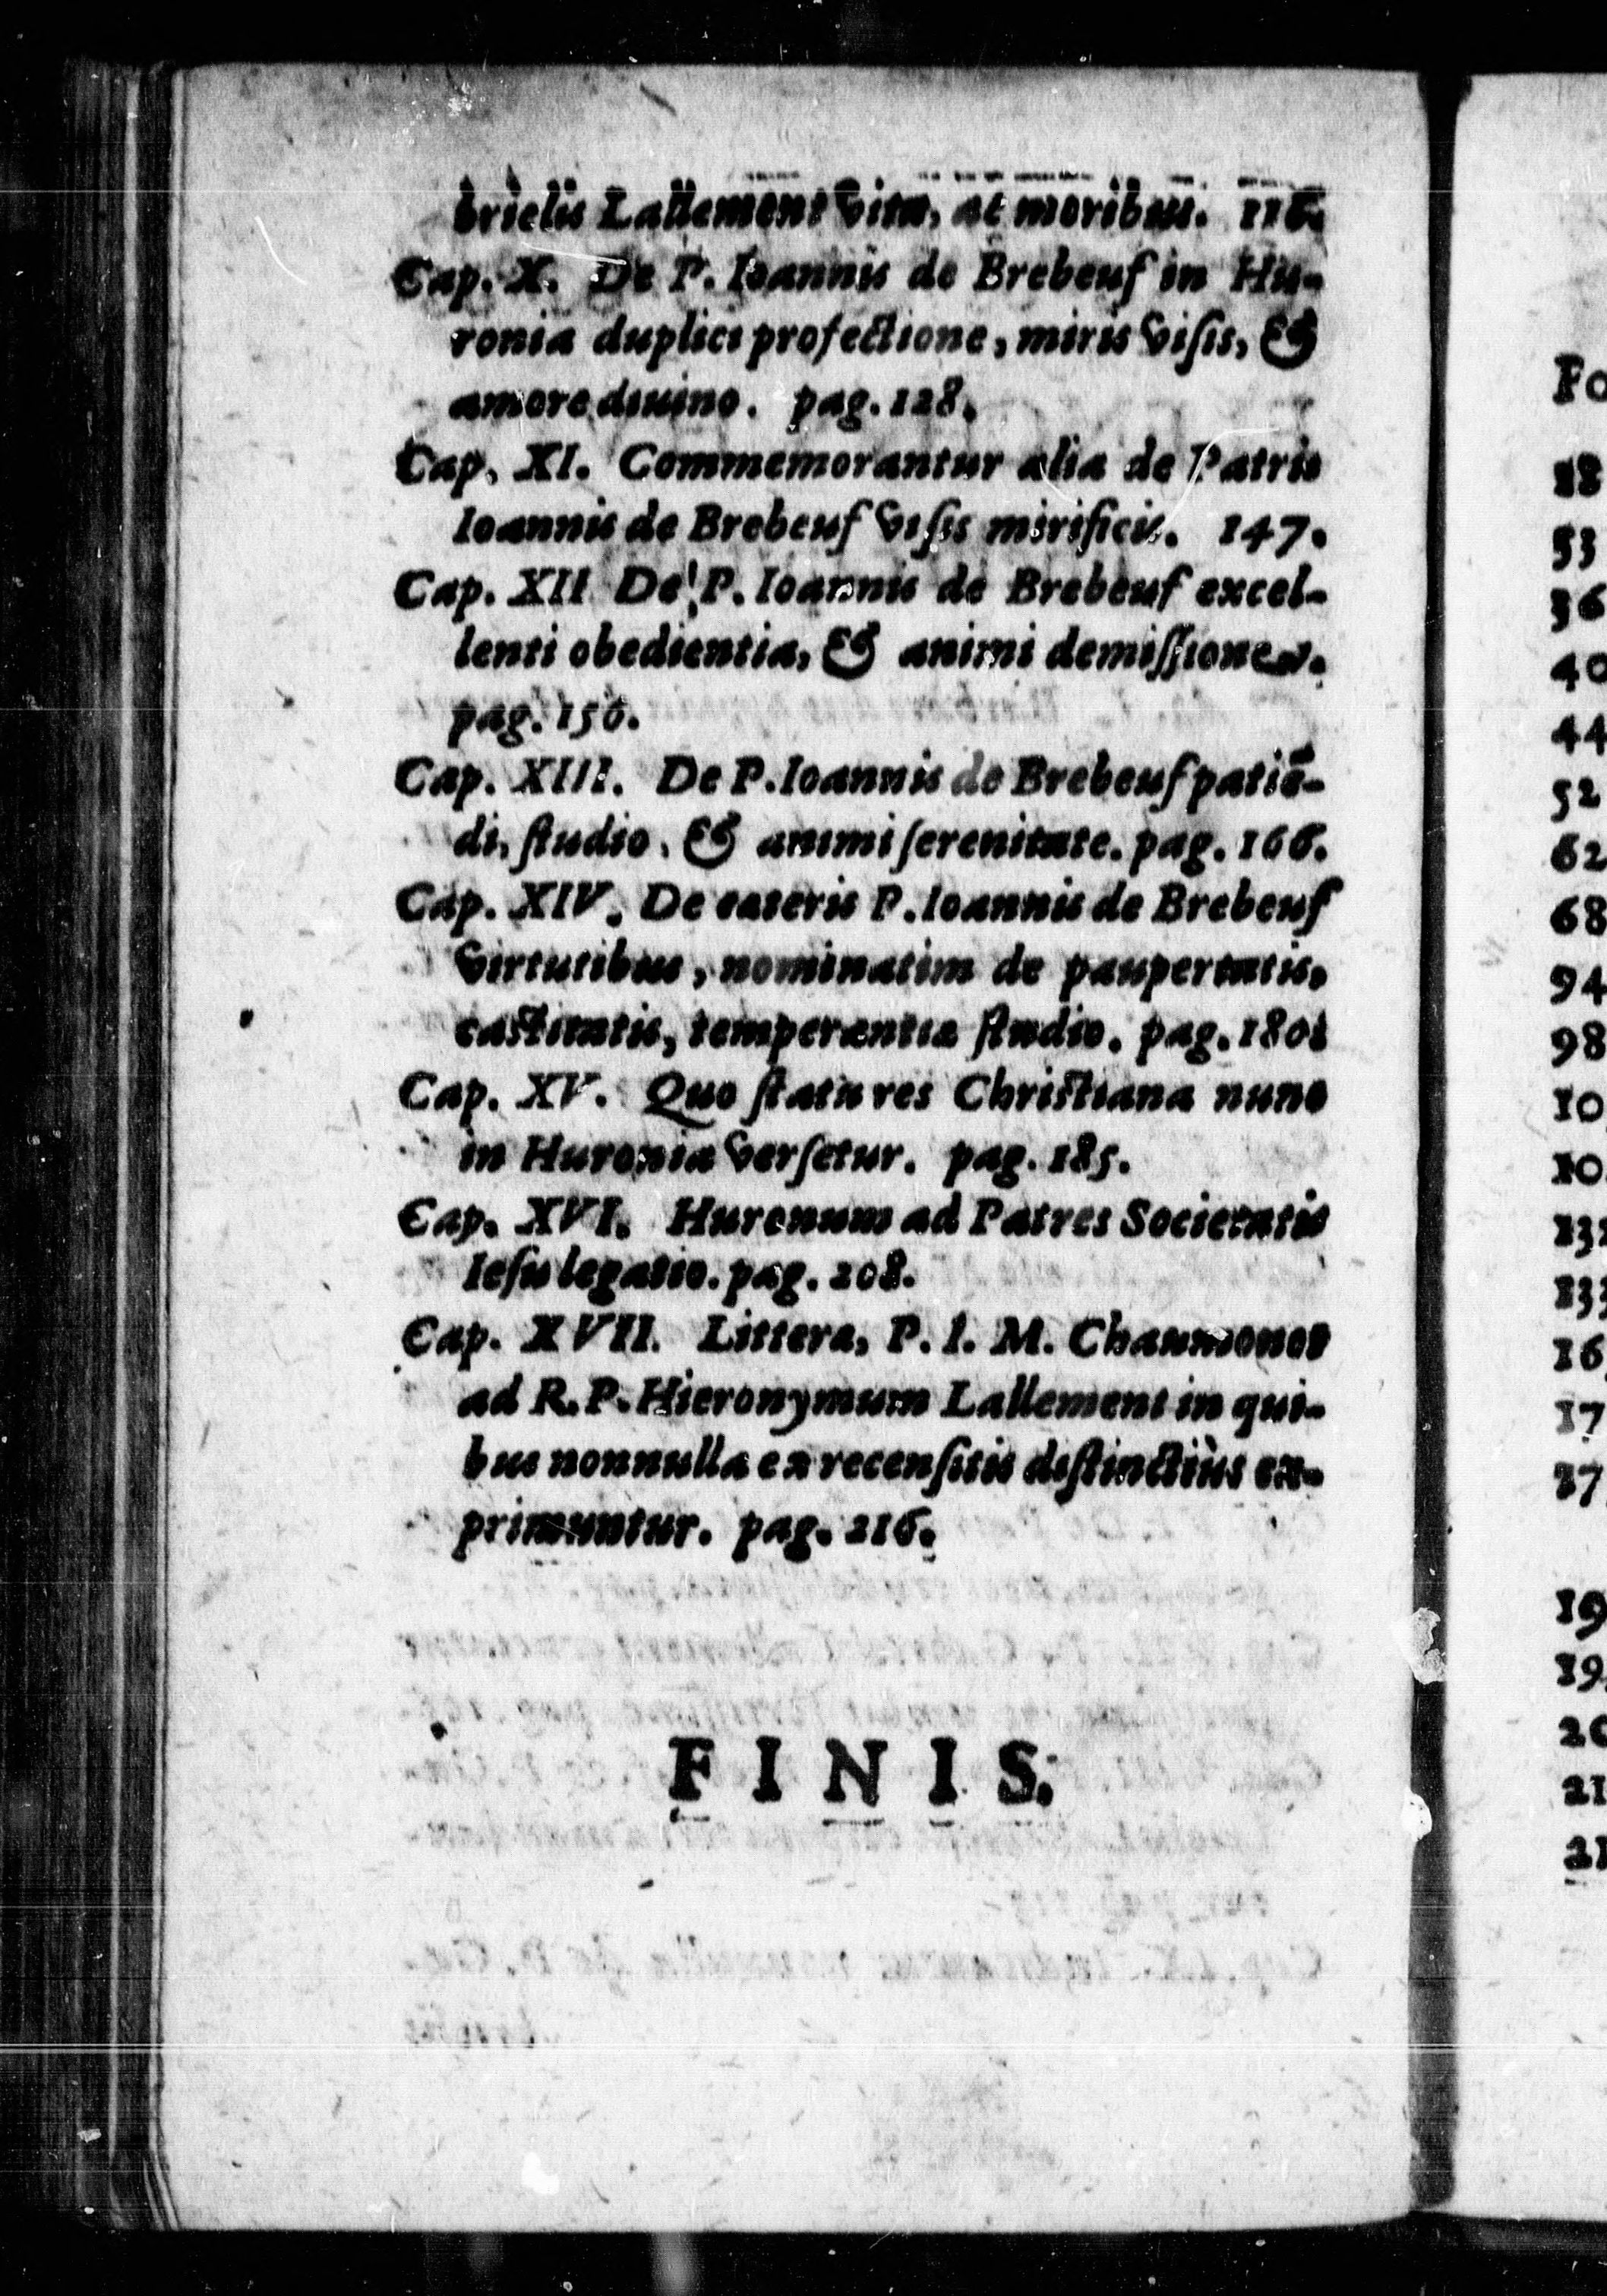 brielis Lallement vita, ac moribus. 116.
Cap. X. De P. Ioannis de Brebeuf in Hu-
ronia duplici profectione, miris viſis, &
amore diuino. pag. 128.
Cap. XI. Commemorantur alia de Patris
Ioannis de Brebeuf viſis mirificis. 147.
Cap. XII De P. Ioannis de Brebeuf excel-
lenti obedientia, & animi demiſſione.
pag. 156.
Cap. XIII. De P. Ioannis de Brebeuf patiē-
di, ſtudio, & animi ſerenitate. pag. 166.
Cap. XIV. De cateris P. Ioannis de Brebeuf
virtutibus, nominatim de paupertatis,
caſtitatis, temperantia ſtudio. pag. 180.
Cap. XV. Quo ſtatu res Chriſtiana nunc
in Huronia verſetur. pag. 185.
Cap. XVI. Huronum ad Patres Societatis
Ieſu legatio. pag. 208.
Cap. XVII. Littera, P. I. M. Chaumonot
ad R. P. Hieronymum Lallement in qui-
bus nonnulla ex recenſitis diſtinctiùs ex-
primuntur. pag. 216.
FINIS.
Fo
18
53
36
40
44
52
62
68
94
98
10
10
131
133
16
17
17
19
19
20
21
21